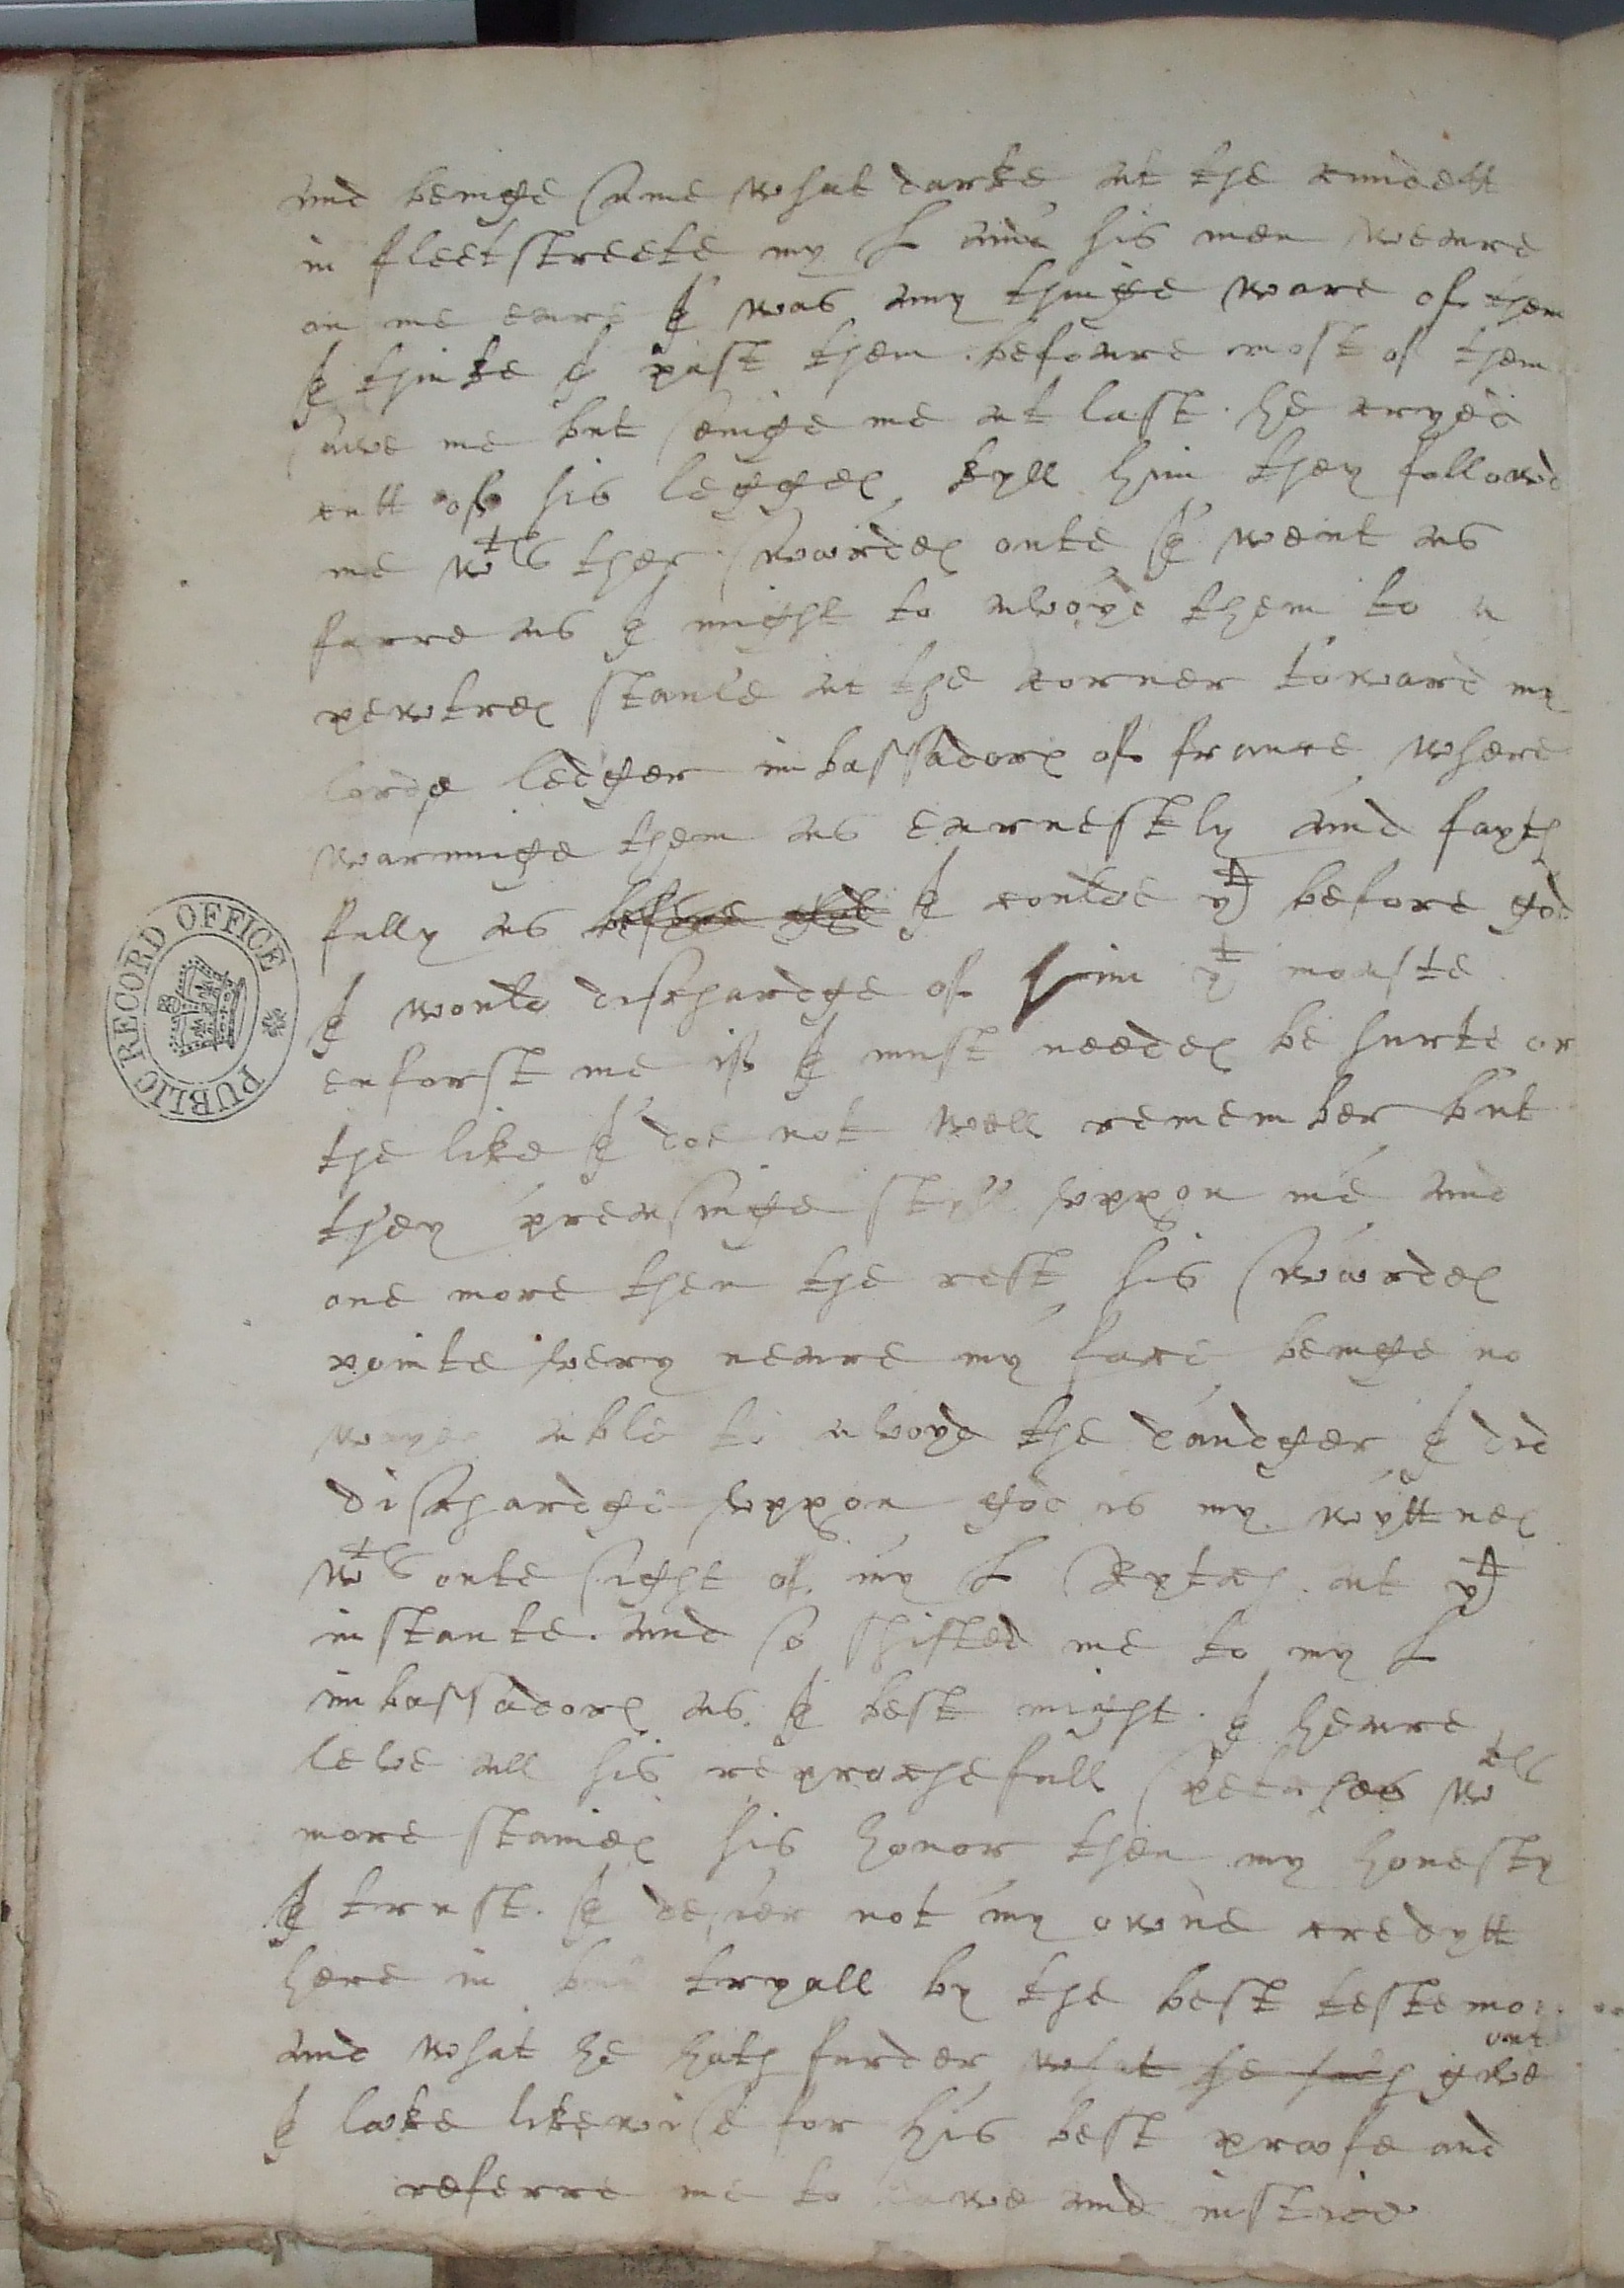 and beinge sume what darke at the cundett
in fleetstreete my L and his men weare
on me eare I was any thinge ware of them
I thinke I past them befoure most of them
sawe me but seinge me at last he cryed
cutt of his legges kyll him they followd
me wth ther swordes oute I went as
farre as I might to avoyde them to a
pewtres staule at the corner toward my
lorde ledger imbassadores of france where
warninge them as earnestly and fayth
fully as before god I coulde yt before god
I would dischardge of him yt mouste
enforst me if I must needes be hurte or
the like I doe not well remember but
they preasinge styll vppon me and
one more then the rest his swordes
pointe very neare my face beinge no
wayes able to avoyd the dandger I did
dischardge vppon god is my wyttnes
wth oute sight of my L Rytch at yt
instante. and so shifted me to my L
imbassadores as I best might. I heare
leve all his reprochefull speaches wch
more staines his honor then my honesty
I trust. I desier not my owne credytt
here in but tryall by the best testemo
and what he hath furder what he hath give
out
I looke likewise for his best proofe and
referre me to lawe and iustice
PUBLIC RECORD OFFICE